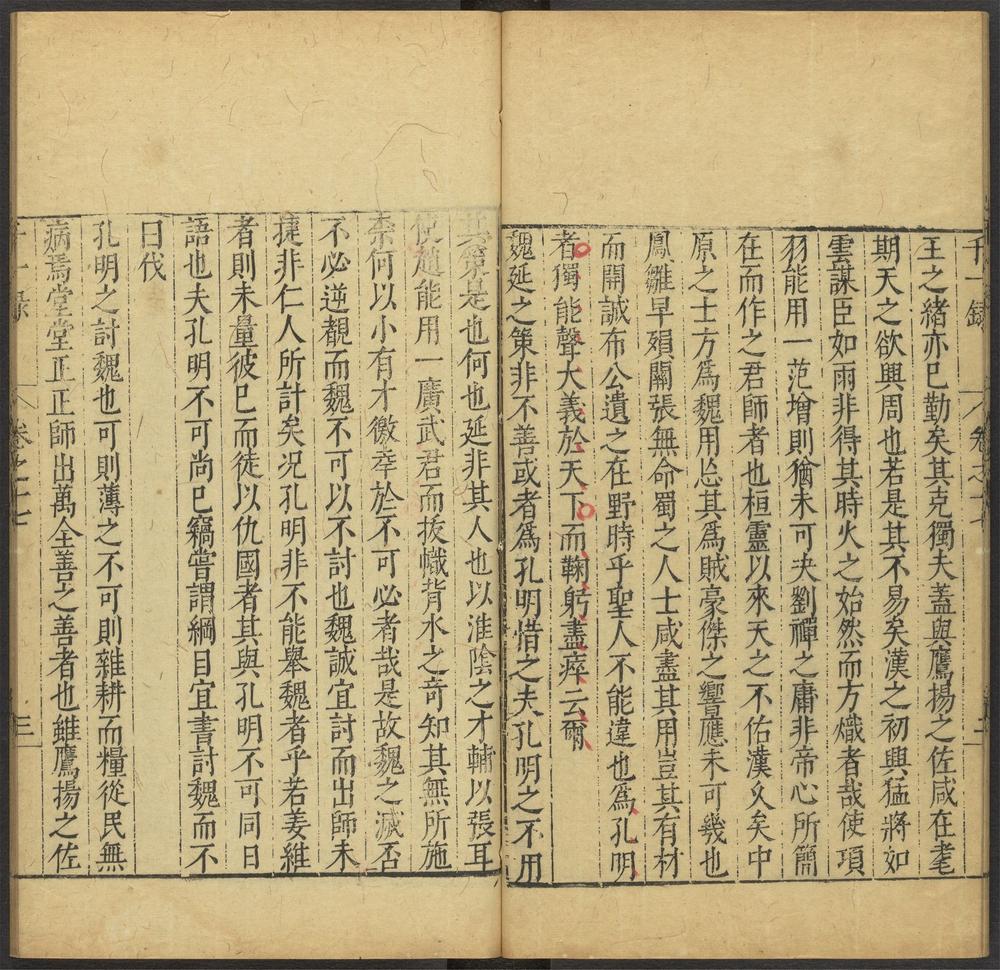 千一録 卷之十七 二
王之緒亦已勤矣其克獨夫蓋與鷹揚之佐咸在耄
期天之欲興周也若是其不易矣漢之初興猛將如
雲謀臣如雨非得其時火之始然而方熾者哉使項
羽能用一范增則猶未可夫劉禪之庸非帝心所簡
在而作之君師者也桓靈以來天之不佑漢久矣中
原之士方爲魏用忘其爲賊豪傑之響應未可幾也
鳳雛早殞關張無命蜀之人士咸盡其用豈其有材
而開誠布公遺之在野時乎聖人不能違也爲孔明
者獨能聲大義於天下而鞠躬盡瘁云爾
魏延之策非不善或者爲孔明惜之夫孔明之不用
其策是也何也延非其人也以淮陰之才輔以張耳
使趙能用一廣武君而拔幟背水之奇知其無所施
柰何以小有才徼幸於不可必者哉是故魏之滅否
不必逆覩而魏不可以不討也魏誠宜討而出師未
捷非仁人所計矣况孔明非不能舉魏者乎若姜維
者則未量彼已而徒以仇國者其與孔明不可同日
語也夫孔明不可尚已竊嘗謂綱目宜書討魏而不
曰伐
孔明之討魏也可則薄之不可則雜耕而糧從民無
病焉堂堂正正師出萬全善之善者也雖鷹揚之佐
千一録 卷之十七 三